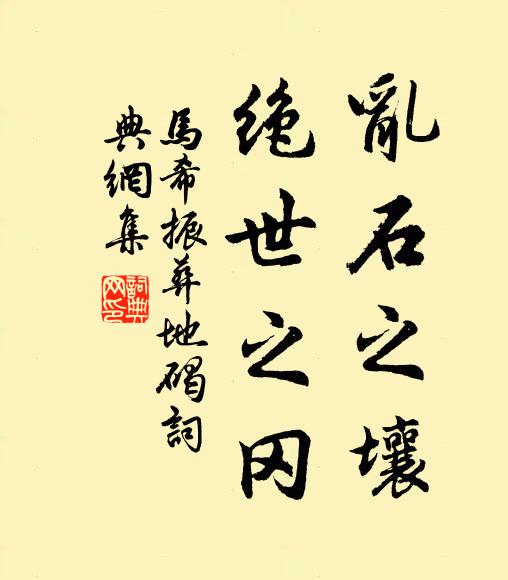 亂石之壤
絕世之冈
馬希振葬地碣詞
典網集
詞典网印